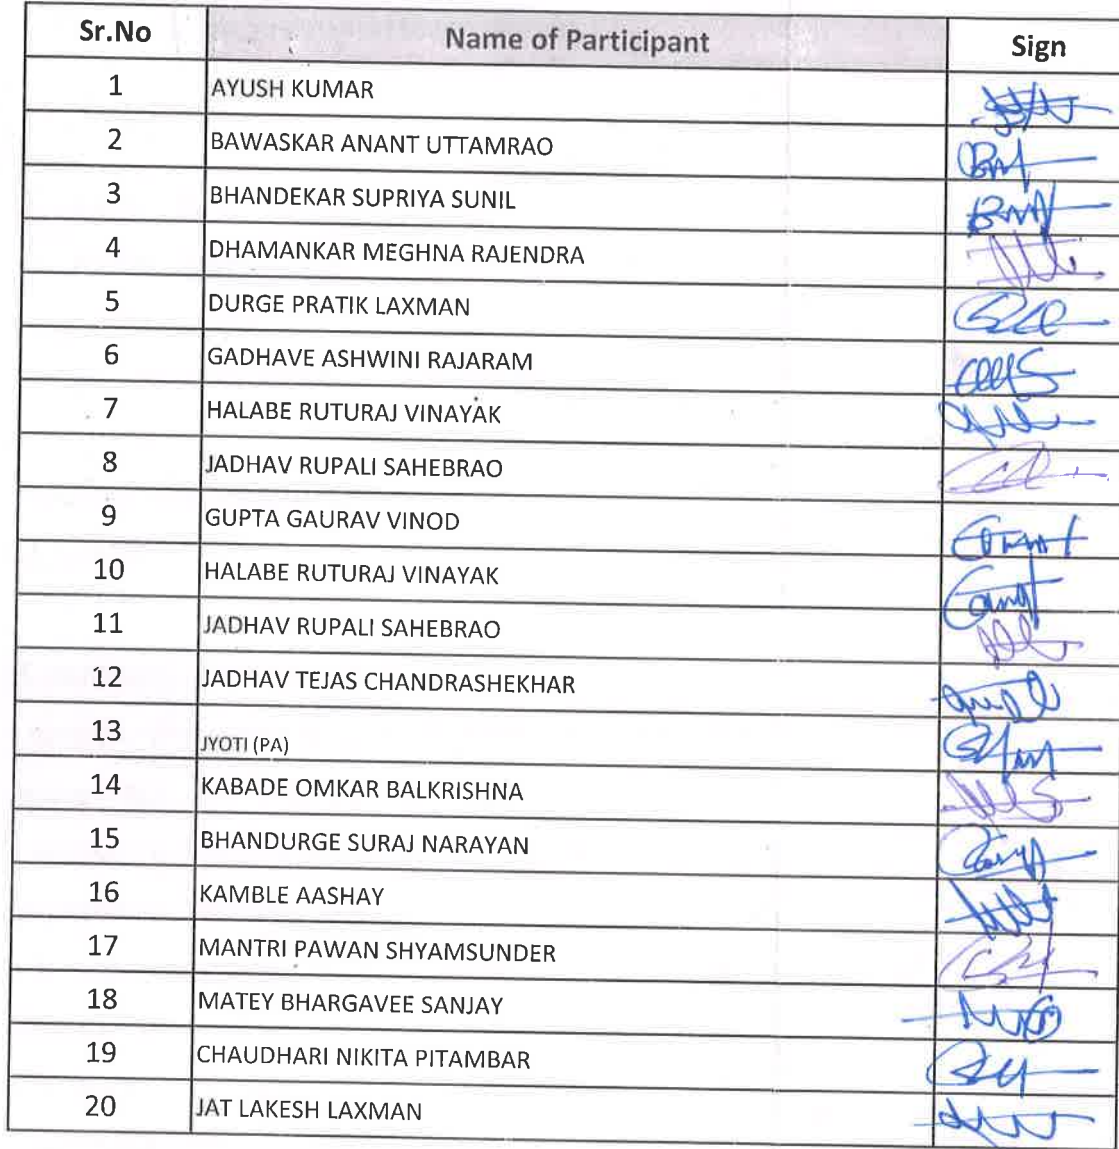 Sr.No Name of Participant Sign
1 AYUSH KUMAR
2 BAWASKAR ANANT UTTAMRAO
3 BHANDEKAR SUPRIYA SUNIL
4 DHAMANKAR MEGHNA RAJENDRA
5 DURGE PRATIK LAXMAN
6 GADHAVE ASHWINI RAJARAM
7 HALABE RUTURAJ VINAYAK
8 JADHAV RUPALI SAHEBRAO
9 GUPTA GAURAV VINOD
10 HALABE RUTURAJ VINAYAK
11 JADHAV RUPALI SAHEBRAO
12 JADHAV TEJAS CHANDRASHEKHAR
13 JYOTI (PA)
14 KABADE OMKAR BALKRISHNA
15 BHANDURGE SURAJ NARAYAN
16 KAMBLE AASHAY
17 MANTRI PAWAN SHYAMSUNDER
18 MATEY BHARGAVEE SANJAY
19 CHAUDHARI NIKITA PITAMBAR
20 JAT LAKESH LAXMAN